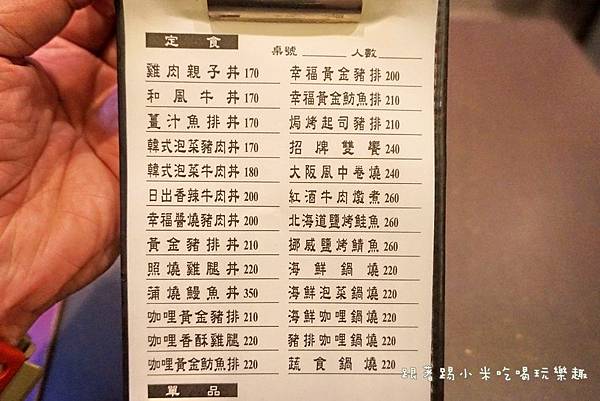 定食
桌號 人數
雞肉親子丼 170
和風牛丼 170
薑汁魚排丼 170
韓式泡菜豬肉丼 170
韓式泡菜牛肉丼 180
日出香辣牛肉丼 200
幸福醬燒豬肉丼 200
黃金豬排丼 210
照燒雞腿丼 220
蒲燒鰻魚丼 350
咖哩黃金豬排 210
咖哩香酥雞腿 220
咖哩黃金魴魚排 220
幸福黃金豬排 200
幸福黃金魴魚排 210
焗烤起司豬排 210
招牌雙饗 240
大阪風中卷燒 240
紅酒牛肉燉煮 260
北海道鹽烤鮭魚 260
挪威鹽烤鯖魚 260
海鮮鍋燒 220
海鮮泡菜鍋燒 220
海鮮咖哩鍋燒 220
豬排咖哩鍋燒 220
蔬食鍋燒 220
單品
跟著踢小米吃喝玩樂趣